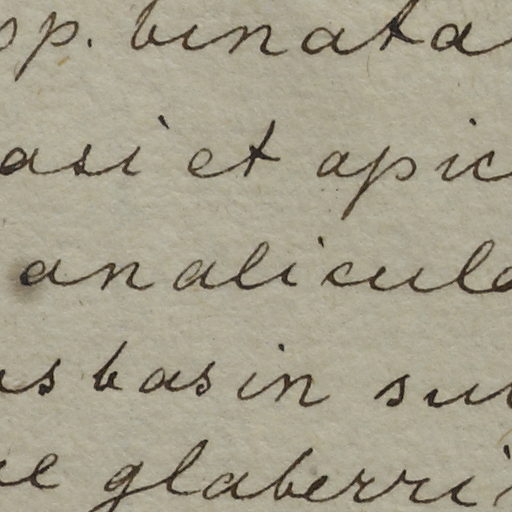 sp. binata
asi et apic
analicula
us basin su
ue glaberri